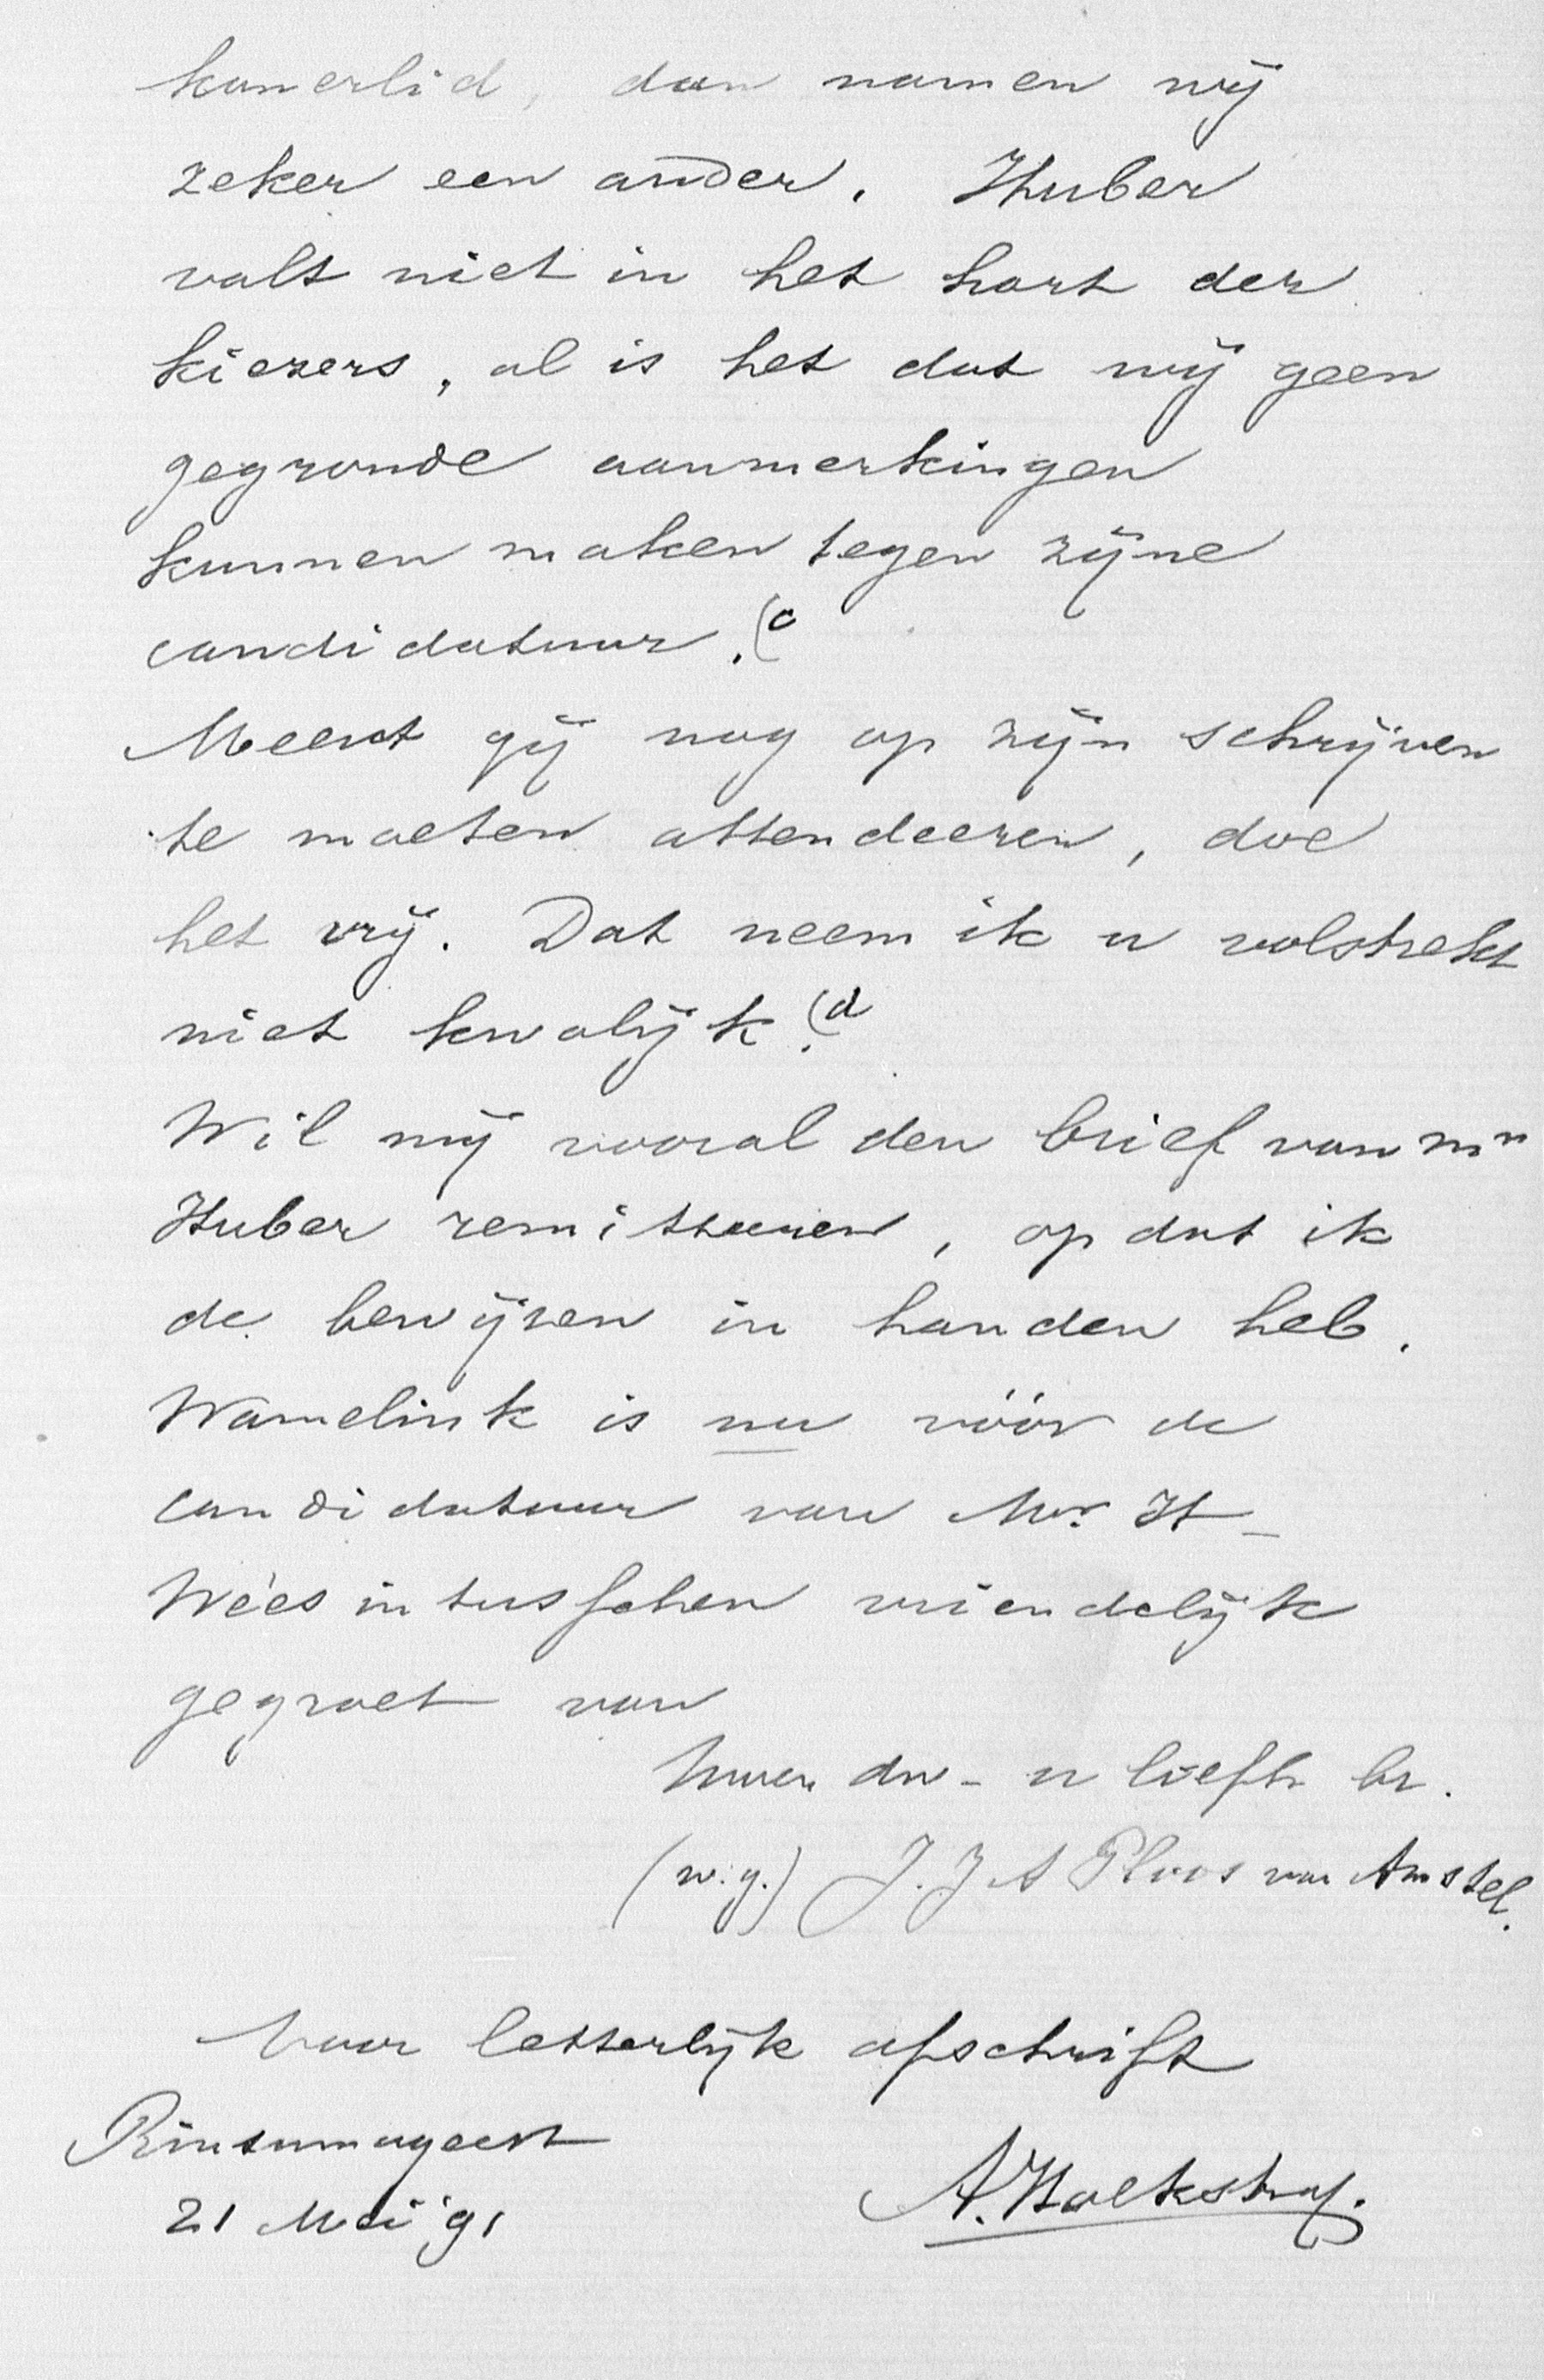 kamerlid, dan namen wij
zeker een ander. Huber
valt niet in het hart der
kiezers, al is het dat wij geen
gegronde aanmerkingen
kunnen maken tegen zijne
candidatuur. (c
Meent gij nog op zijn schrijven
te moeten attendeeren, doe
het vrij. Dat neem ik u volstrekt
niet kwalijk. (d
Wil mij vooral den brief van Mr
Huber remitteeren, op dat ik
de bewijzen in handen heb.
Wamelink is nu vóór de
candidatuur van Mr. H_
Wees intusschen vriendelijk
gegroet van
Uwen dw - u liefh br.
(w.g.) J. J A Ploos van Amstel.
Voor letterlijk afschrift
Rinsumageest
21 Mei '91
A. Hoekstra.